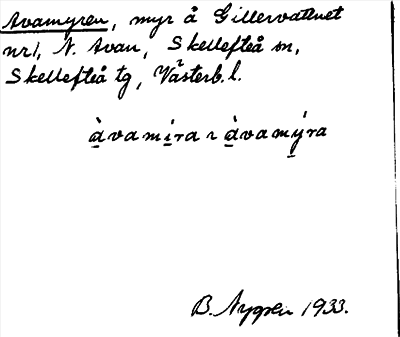 Avamyren, myr å Gillervattnet
nr 1, N. Avan, Skellefteå sn,
Skellefteå tg, Västerb. l.
àvamíra ɩ àvamýra
B. Nygren 1933.